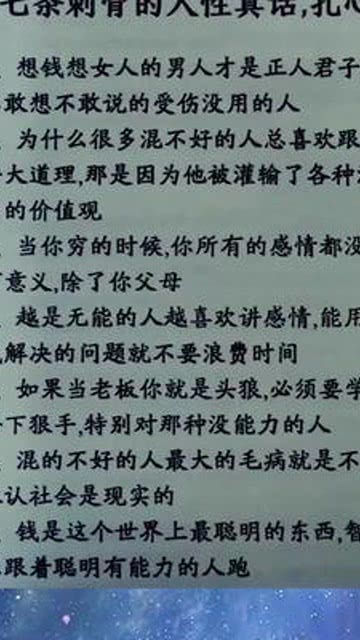 七条刺骨的人性真话,扎心
想钱想女人的男人才是正人君子
敢想不敢说的受伤没用的人
为什么很多混不好的人总喜欢跟
大道理,那是因为他被灌输了各种
的价值观
当你穷的时候,你所有的感情都没
意义,除了你父母
越是无能的人越喜欢讲感情,能用
解决的问题就不要浪费时间
如果当老板你就是头狼,必须要学
下狠手,特别对那种没能力的人
混的不好的人最大的毛病就是不
认社会是现实的
钱是这个世界上最聪明的东西,智
跟着聪明有能力的人跑